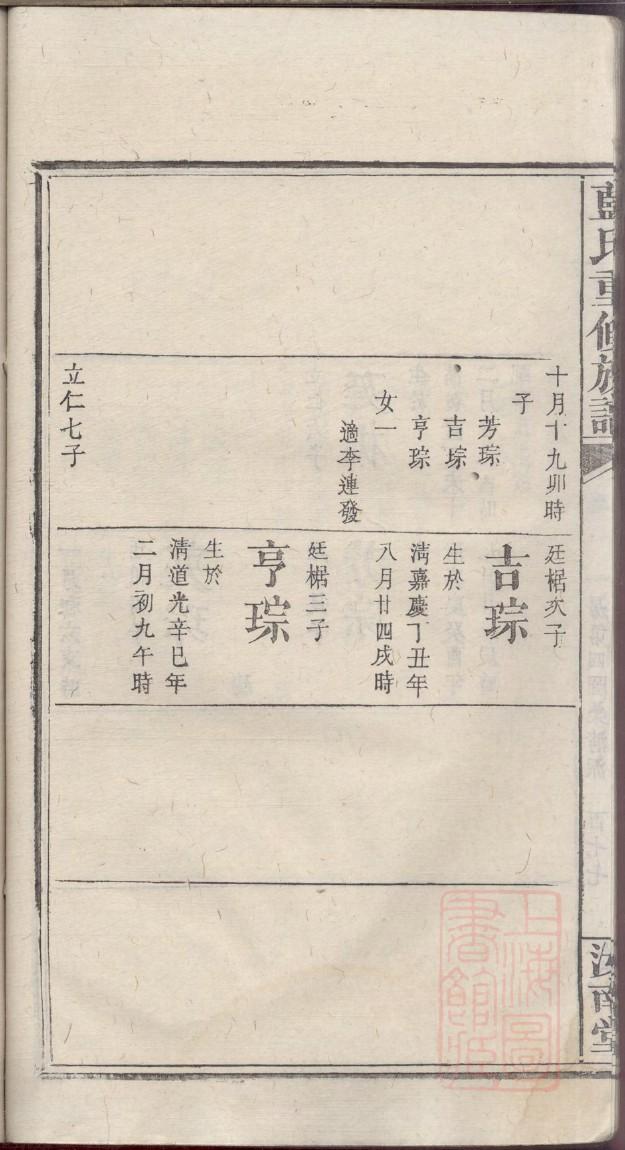 藍氏重修族譜
十月十九卯時
子
芳琮
吉琮
亨琮
女一
適李連發
立仁七子
廷椐次子
吉琮
生於
清嘉慶丁丑年
八月廿四戌時
廷椐三子
亨琮
生於
清道光辛巳年
二月初九午時
汝南堂
上海圖
書館藏